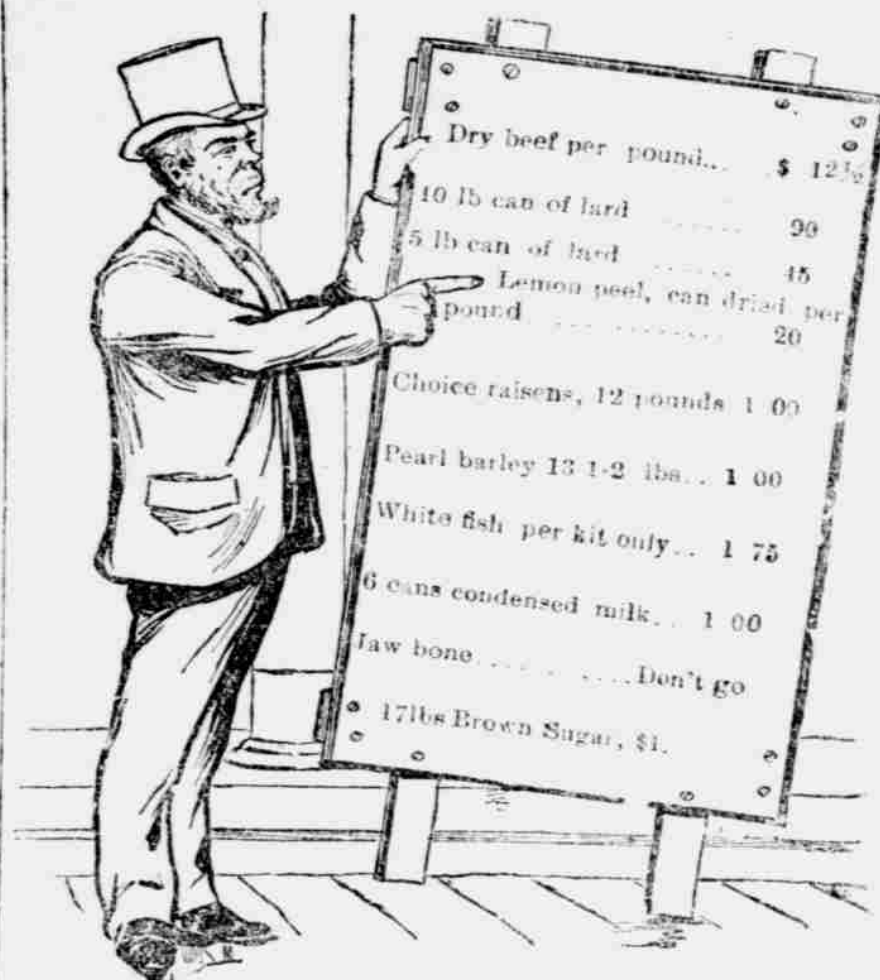 Dry beef per pound... $ 12½
10 lb can of lard ...... 90
5 lb can of lard ...... 45
Lemon peel, can dried, per
pound ............ 20
Choice raisens, 12 pounds 1 00
Pearl barley 13 1-2 lbs... 1 00
White fish per kit only... 1 75
6 cans condensed milk... 1 00
Jaw bone............Don't go
17lbs Brown Sugar, $1.